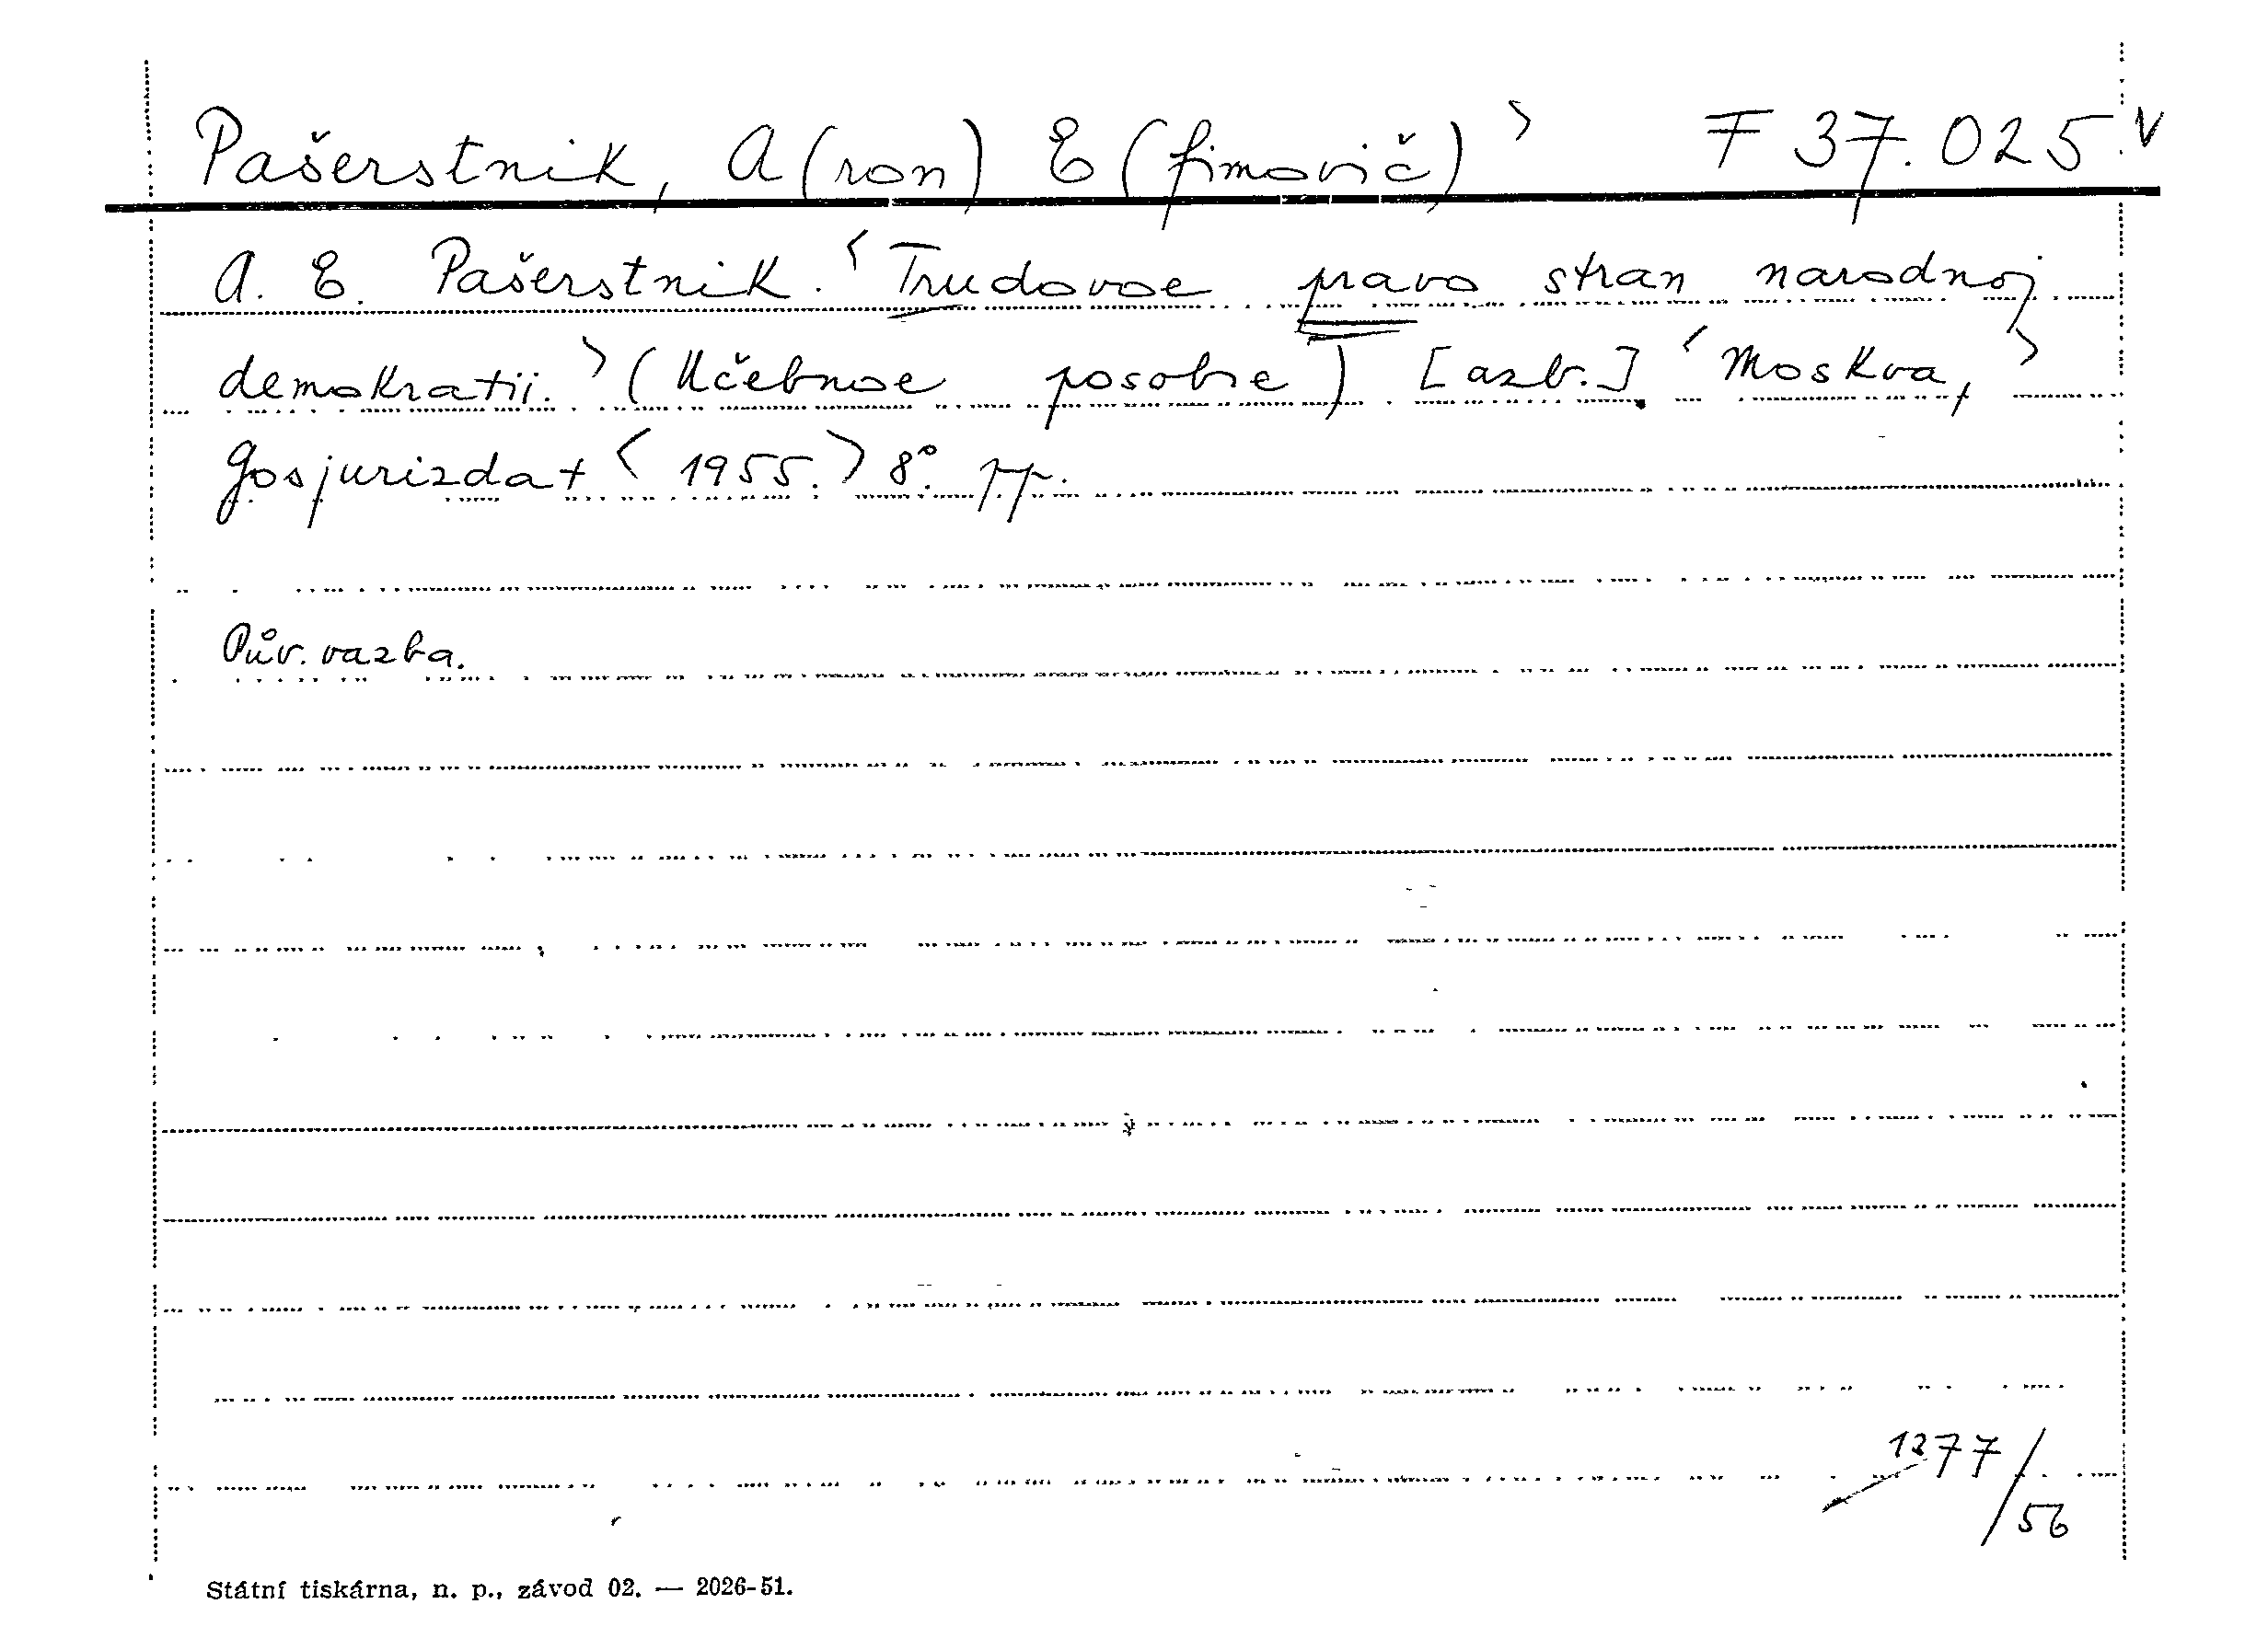 Pašerstnik, A(ron) E(fimovič)> F 37.025.v
A. E. Pašerstnik. <Trudovoe pravo stran narodnoj
demokratii.> (Učebnoe posobie) [azb.] <Moskva,>
Gosjurizdat <1955.> 8°. pp.
Pův. vazba.
1277/56
Státní tiskárna, n. p., závod 02. — 2026-51.